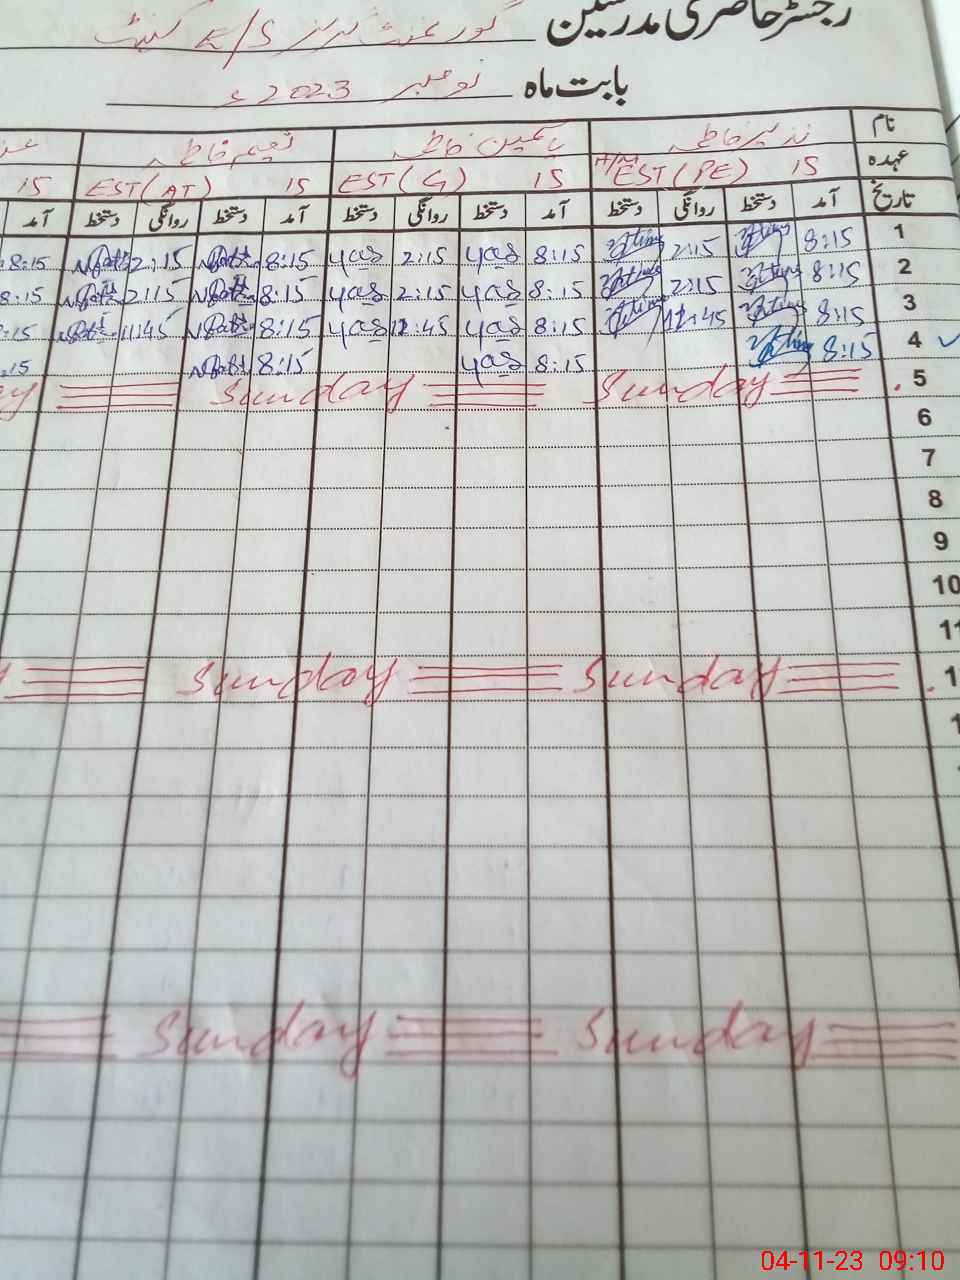 رجسٹر حاضری مدرسین گورنمنٹ گرلز E/S کینٹ
بابت ماہ نومبر 2023ء
نام نذیر فاطمہ یاسمین فاطمہ نعیم فاطمہ
عہدہ H/M EST (PE) 15 EST (G) 15 EST (AT) 15 15
تاریخ آمد دستخط روانگی دستخط آمد دستخط روانگی دستخط آمد دستخط روانگی دستخط آمد
1 8:15 2:15 8:15 yas 2:15 yas 8:15 2:15 8:15
2 8:15 2:15 8:15 yas 2:15 yas 8:15 2:15 8:15
3 8:15 8:15 yas 12:45 yas 8:15 11:45 :15
4 8:15 8:15 yas 8:15 :15
5 Sunday Sunday
6
7
8
9
10
11
1 Sunday Sunday
1
Sunday Sunday
04-11-23 09:10